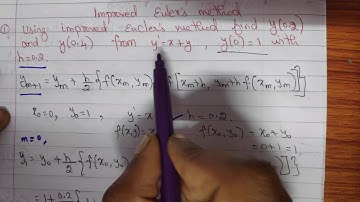 Improved Euler's method
① Using improved Euler's method find y(0.2)
and y(0.4) from y' = x+y , y(0)=1 with
h=0.2.
y_{m+1} = y_m + h/2 { f(x_m, y_m) f[x_m+h, y_m+h f(x_m, y_m)] }
x_0=0, y_0=1, y'=x h=0.2.
f(x,y)=x f(x_0, y_0) = x_0+y_0
m=0, = 0+1 = 1.
y_1 = y_0 + h/2 { f(x_0, y_0) y_0)] }
= 1 + 0.2